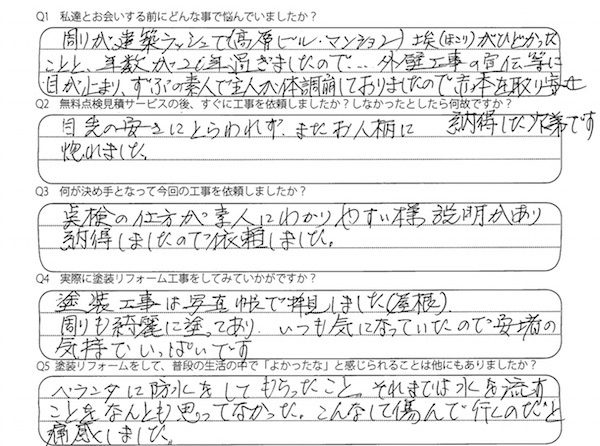 Q1 私達とお会いする前にどんな事で悩んでいましたか？
周りが建築ラッシュで(高層ビル・マンション)埃(ほこり)がひどかった
ことと、年数が20年過ぎましたので… 外壁工事の宣伝等に
目が止まり、ずぶの素人で主人が体調崩しておりましたので 本を取り寄せ
納得した次第です
Q2 無料点検見積サービスの後、すぐに工事を依頼しましたか？しなかったとしたら何故ですか？
目先の安さにとらわれず、またお人柄に
惚れました。
Q3 何が決め手となって今回の工事を依頼しましたか？
点検の仕方が素人にわかりやすい様説明があり
納得しましたので依頼しました。
Q4 実際に塗装リフォーム工事をしてみていかがですか？
塗装工事は写真帳で拝見しました(屋根)
周りも綺麗に塗ってあり、いつも気になっていたので安堵の
気持でいっぱいです
Q5 塗装リフォームをして、普段の生活の中で「よかったな」と感じられることは他にもありましたか？
ベランダに防水をしてもらったこと。それまでは水を流す
ことをなんとも思ってなかった。こんなして傷んで行くのだと
痛感しました。